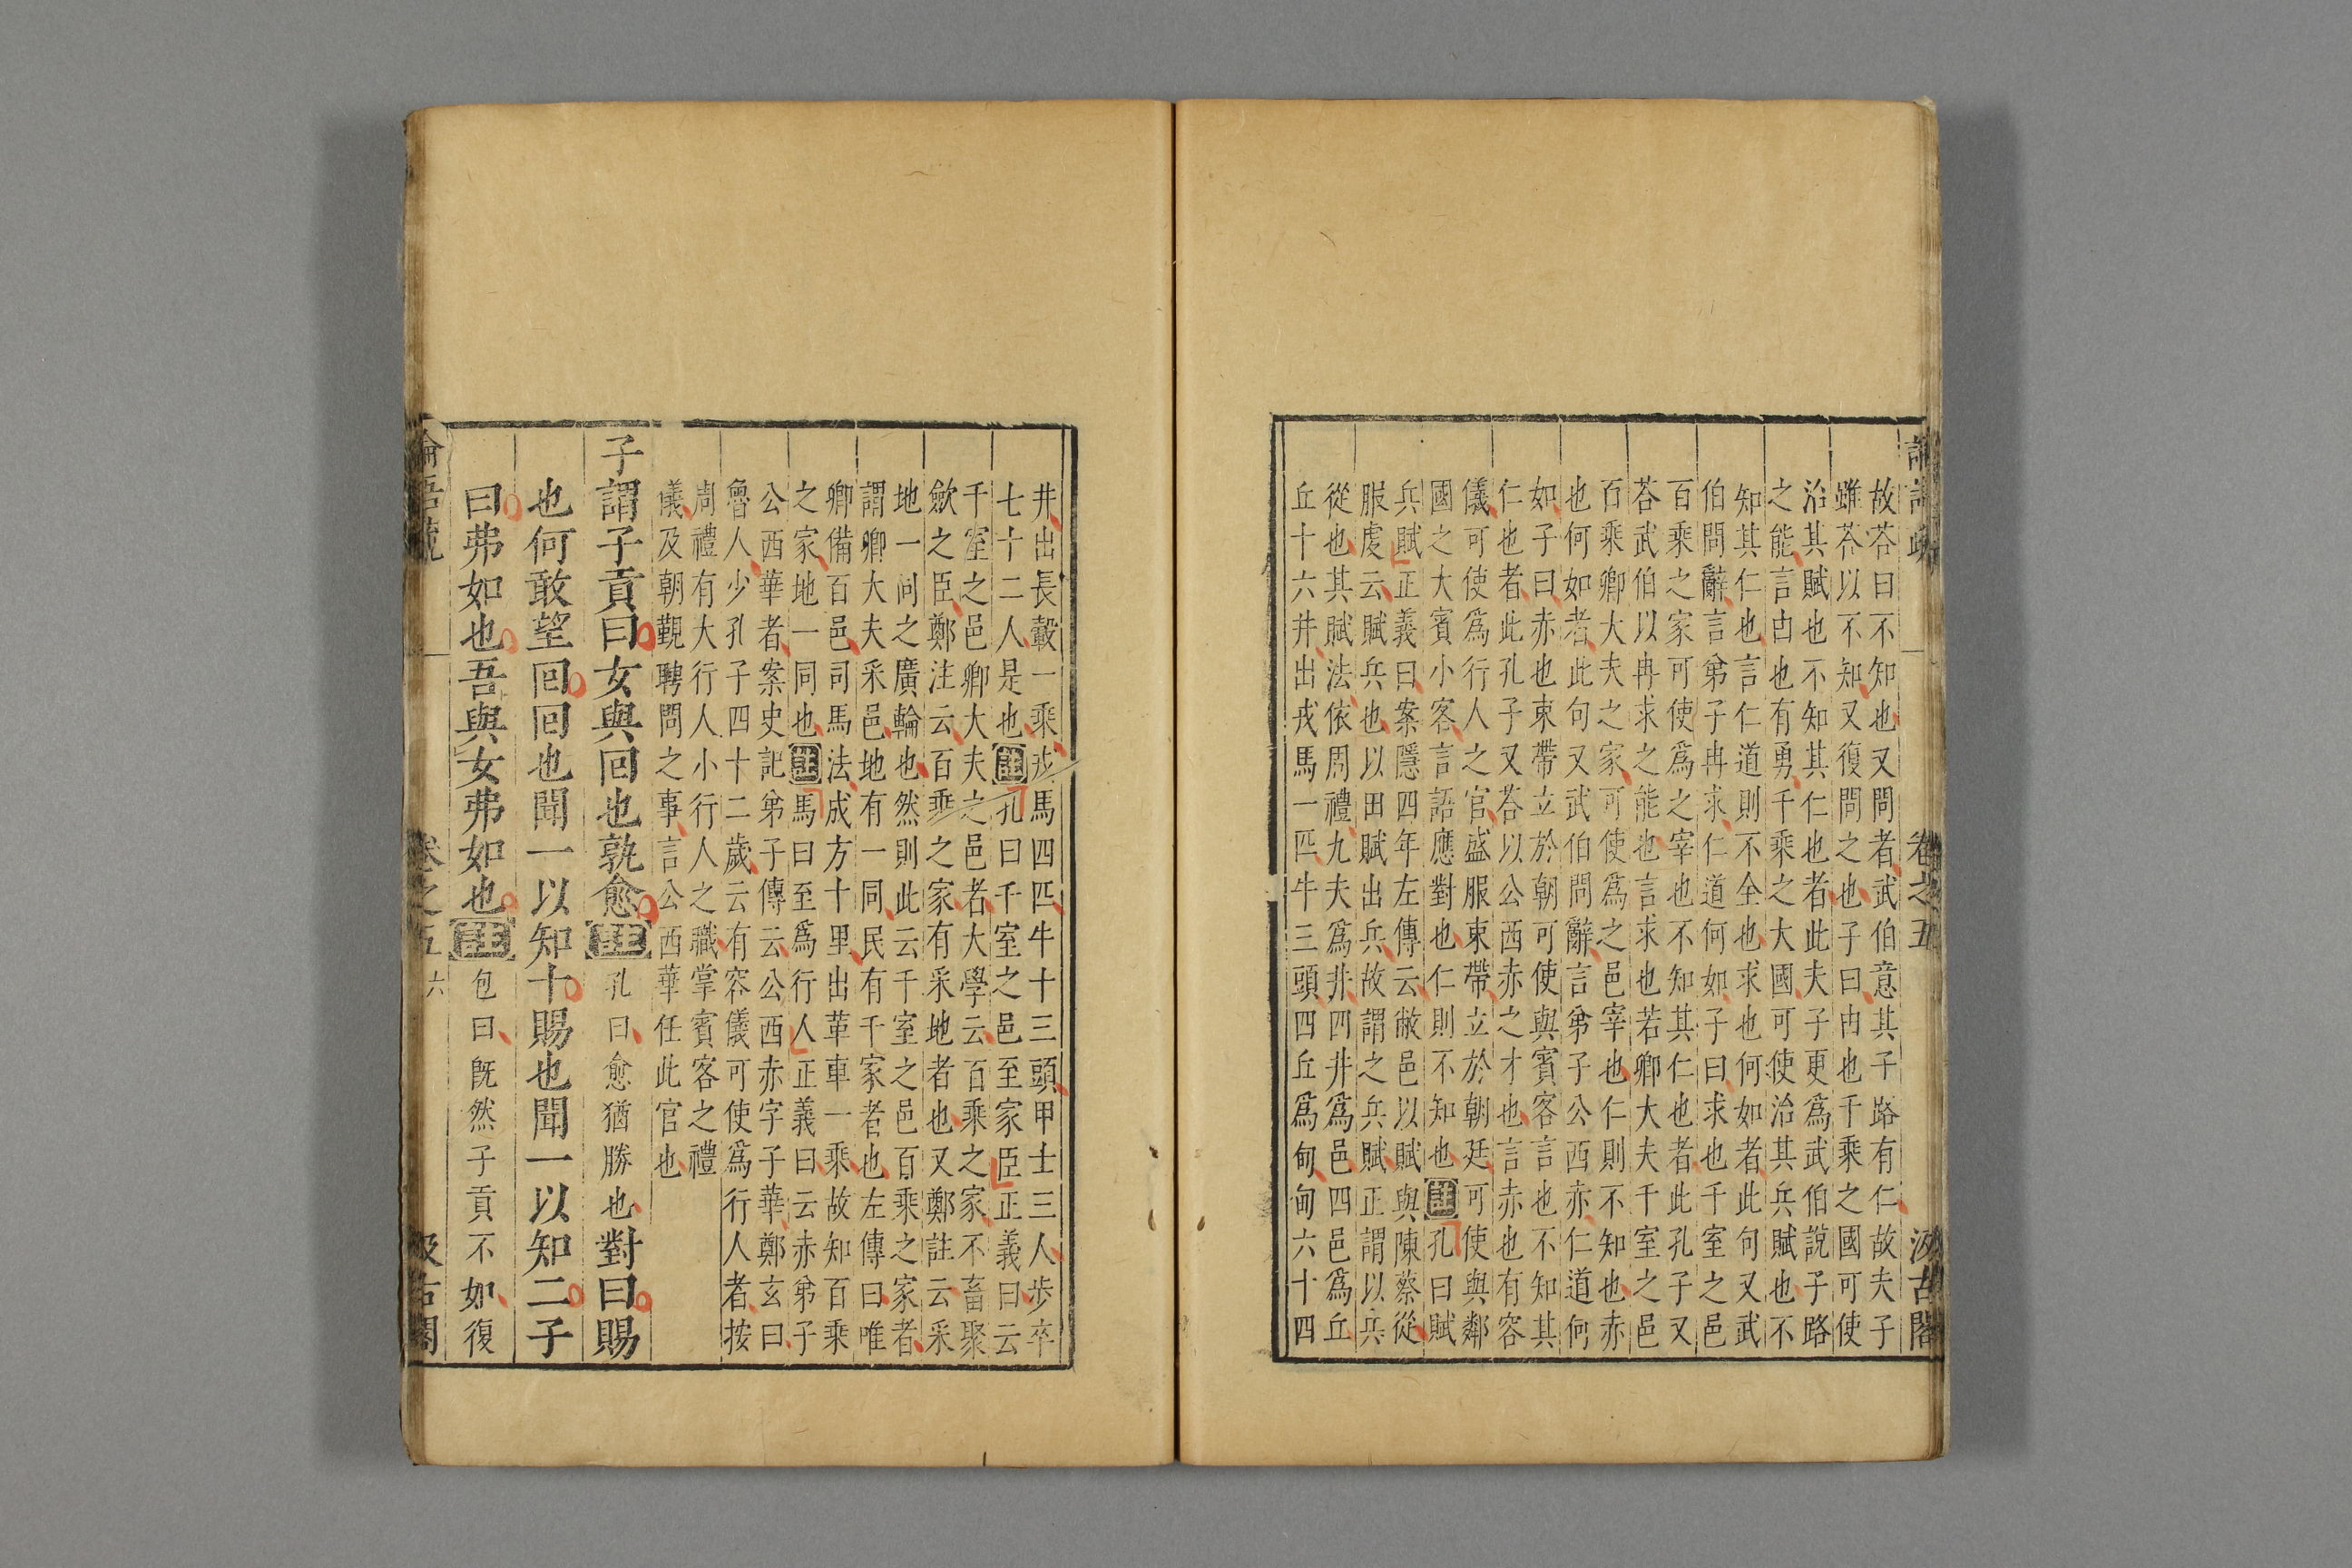 故荅曰不知也又問者武伯意其子路有仁故夫子
雖荅以不知又復問之也子曰由也千乘之國可使
治其賦也不知其仁也者此夫子更爲武伯說子路
之能言由也有勇千乘之大國可使治其兵賦也不
知其仁也言仁道則不全也求也何如者此句又武
伯問辭言弟子冉求仁道何如子曰求也千室之邑
百乘之家可使爲之宰也不知其仁也者此孔子又
荅武伯以冉求之能也言求也若卿大夫千室之邑
百乘卿大夫之家可使爲之邑宰也仁則不知也赤
也何如者此句又武伯問辭言弟子公西赤仁道何
如子曰赤也束帶立於朝可使與賓客言也不知其
仁也者此孔子又荅以公西赤之才也言赤也有容
儀可使爲行人之官盛服束帶立於朝廷可使與鄰
國之大賓小客言語應對也仁則不知也註孔曰賦
兵賦正義曰案隱四年左傳云敝邑以賦與陳蔡從
服虔云賦兵也以田賦出兵故謂之兵賦正謂以兵
從也其賦法依周禮九夫爲井四井爲邑四邑爲丘
丘十六井出戎馬一匹牛三頭四丘爲甸甸六十四
論語疏
卷之五
汲古閣
井出長轂一乘戎馬四匹牛十三頭甲士三人步卒
七十二人是也註孔曰千室之邑至家臣正義曰云
千室之邑卿大夫之邑者大學云百乘之家不畜聚
歛之臣鄭注云百乘之家有采地者也又鄭註云采
地一同之廣輪也然則此云千室之邑百乘之家者
謂卿大夫采邑地有一同民有千家者也左傳曰唯
卿備百邑司馬法成方十里出革車一乘故知百乘
之家地一同也註馬曰至爲行人正義曰云赤弟子
公西華者案史記弟子傳云公西赤字子華鄭玄曰
魯人少孔子四十二歲云有容儀可使爲行人者按
周禮有大行人小行人之職掌賓客之禮
儀及朝覲聘問之事言公西華任此官也
子謂子貢曰女與回也孰愈註孔曰愈猶勝也對曰賜
也何敢望回回也聞一以知十賜也聞一以知二子
曰弗如也吾與女弗如也註包曰既然子貢不如復
論語疏
卷之五
六
汲古閣